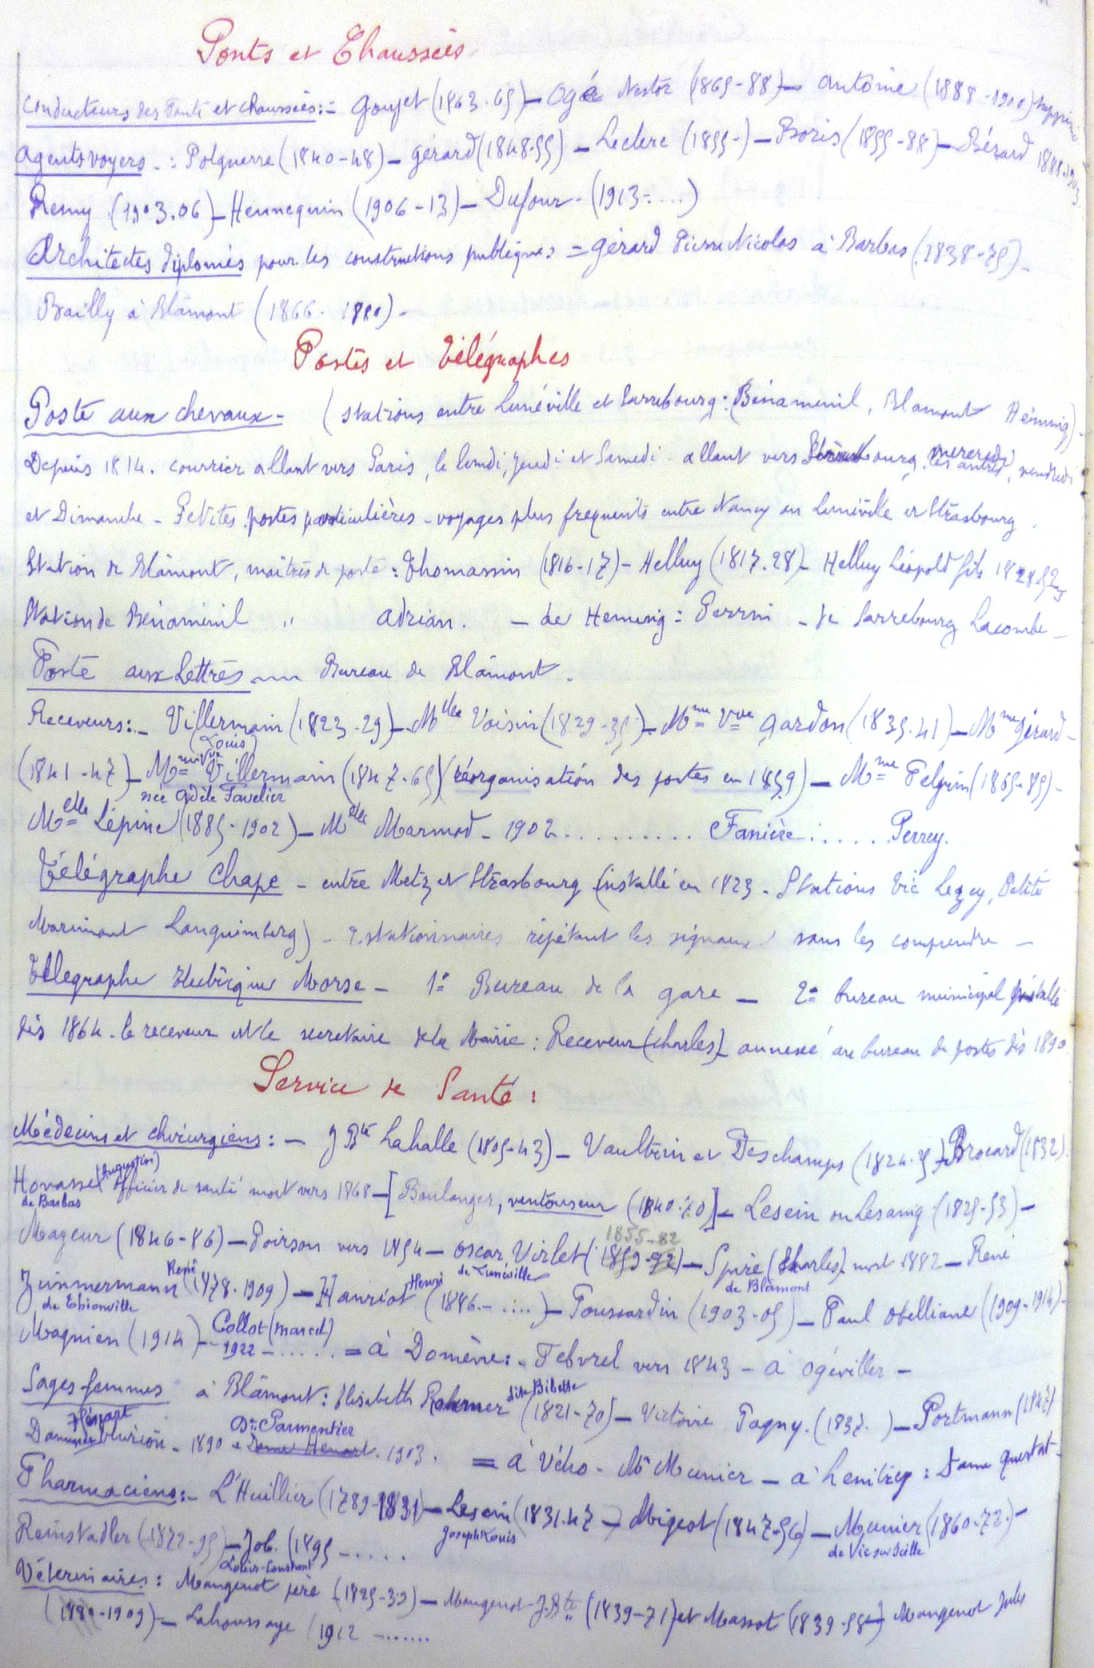 Ponts et Chaussées
Conducteurs des Ponts et chaussées := Goujet (1863-65) – Ogé Nestor (1865-88) – Antoine (1888-1900)
Agents voyers - : Polguerre (1840-48) – Gérard (1848-55) – Leclerc (1855-) – Boris (1855-88) – Bérard 1888-1903
Remy (1903.06) – Hennequin (1906-13) – Dufour - (1913-....)
Architectes diplomés pour les constructions publiques = Gérard Pierre Nicolas à Barbas (1838-75) -
Bailly à Blâmont (1866-1880) -
Postes et Télégraphes
Poste aux chevaux - (stations entre Lunéville et Sarrebourg : Bénaménil, Blamont Héming) -
Depuis 1814. courrier allant vers Paris, le lundi, jeudi et Samedi - allant vers Strasbourg, mercredi, vendredi
et Dimanche - Petites postes particulières - voyages plus frequents entre Nancy ou Lunéville et Strasbourg.
Station de Blâmont, maîtres de poste : Thomassin (1816-17) - Helluy (1817-28) - Helluy Léopold fils 1828-52
Station de Bénaménil " Adrian. - de Heming : Perrin - de Sarrebourg Lacombe -
Poste aux Lettres Bureau de Blâmont.
Receveurs :- Villermain (Louis) (1823-29) – Mlle Voisin (1829-35) – Mme Vve Gardon (1835-41) – Mme Gérard -
(1841-47) – Mme Vve Villermain née Adèle Favelier (1847-65) (réorganisation des postes en 1859) – Mme Pelgrin (1865-85) -
Melle Lépine (1885-1902) – Melle Marmod - 1902.......... Fanière...... Perrey.
Télégraphe Chape - entre Metz et Strasbourg (installé en 1823 - Stations Vic Lezey, Delité
Marimont Languimberg) - 2 stationnaires répétant les signaux sans les comprendre -
Télégraphe Electrique Morse - 1° Bureau de la gare - 2° bureau municipal installé
dès 1864. le receveur et le secretaire de la Mairie : Receveur (Charles) annexé au bureau de postes dès 1890
Service de Santé :
Médecins et chirurgiens : - J Bte Lahalle (1805-43) – Vaultrin et Deschamps (1824-35) – Brocard (1832)
Honassel (Augustin) de Barbas officier de santé mort vers 1868 – [Boulanger, ventouseur (1840-60)] – Lesein ou Lesaing (1825-53) -
Mageur (1846-86) – Poirson vers 1854 – Oscar Virlet de Lunéville (1859-92) 1855-82 – Spire (Charles) de Blâmont mort 1882 – René
Zimmermann René de Thionville (1878-1909) – Hanriot Henri (1886-....) – Toussardin (1903-05) – Paul Obelliane (1909-1914) -
Magnien (1914) - Collot (Marcel) 1922 -..... = à Domèvre : - Febvrel vers 1843 - à Ogéviller -
Sages femmes à Blâmont : Elisabeth dite Bibette (1821-70) – Victoire Pagny (1837. ) – Portmann (1847)
Dame Thirion - 1890 Dme Parmentier 1903. = à Vého - Me Munier - à Leintrey : Dame Questat -
Pharmaciens :- L'Huillier (1789-1831) – Lesein Joseph Louis (1831-47) – Migeot (1847-56) – Meunier de Vic sur Seille (1860-72) -
Reinstadler (1872-95) – Job Louis-Constant (1895 - .....
Véterinaires : Mangenot père (1825-39) – Mangenot J.Bte (1839-71) et Massot (1839-58) Mangenot Jules
(1880-1909) – Lahoussaye (1912 - ......